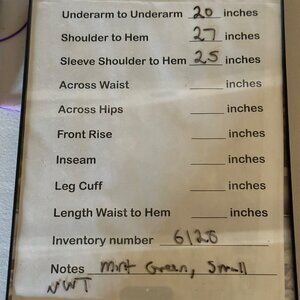 Underarm to Underarm 20 inches
Shoulder to Hem 27 inches
Sleeve Shoulder to Hem 25 inches
Across Waist ____ inches
Across Hips ____ inches
Front Rise ____ inches
Inseam ____ inches
Leg Cuff ____ inches
Length Waist to Hem ____ inches
Inventory number 6128
Notes Mint Green, Small
NWT